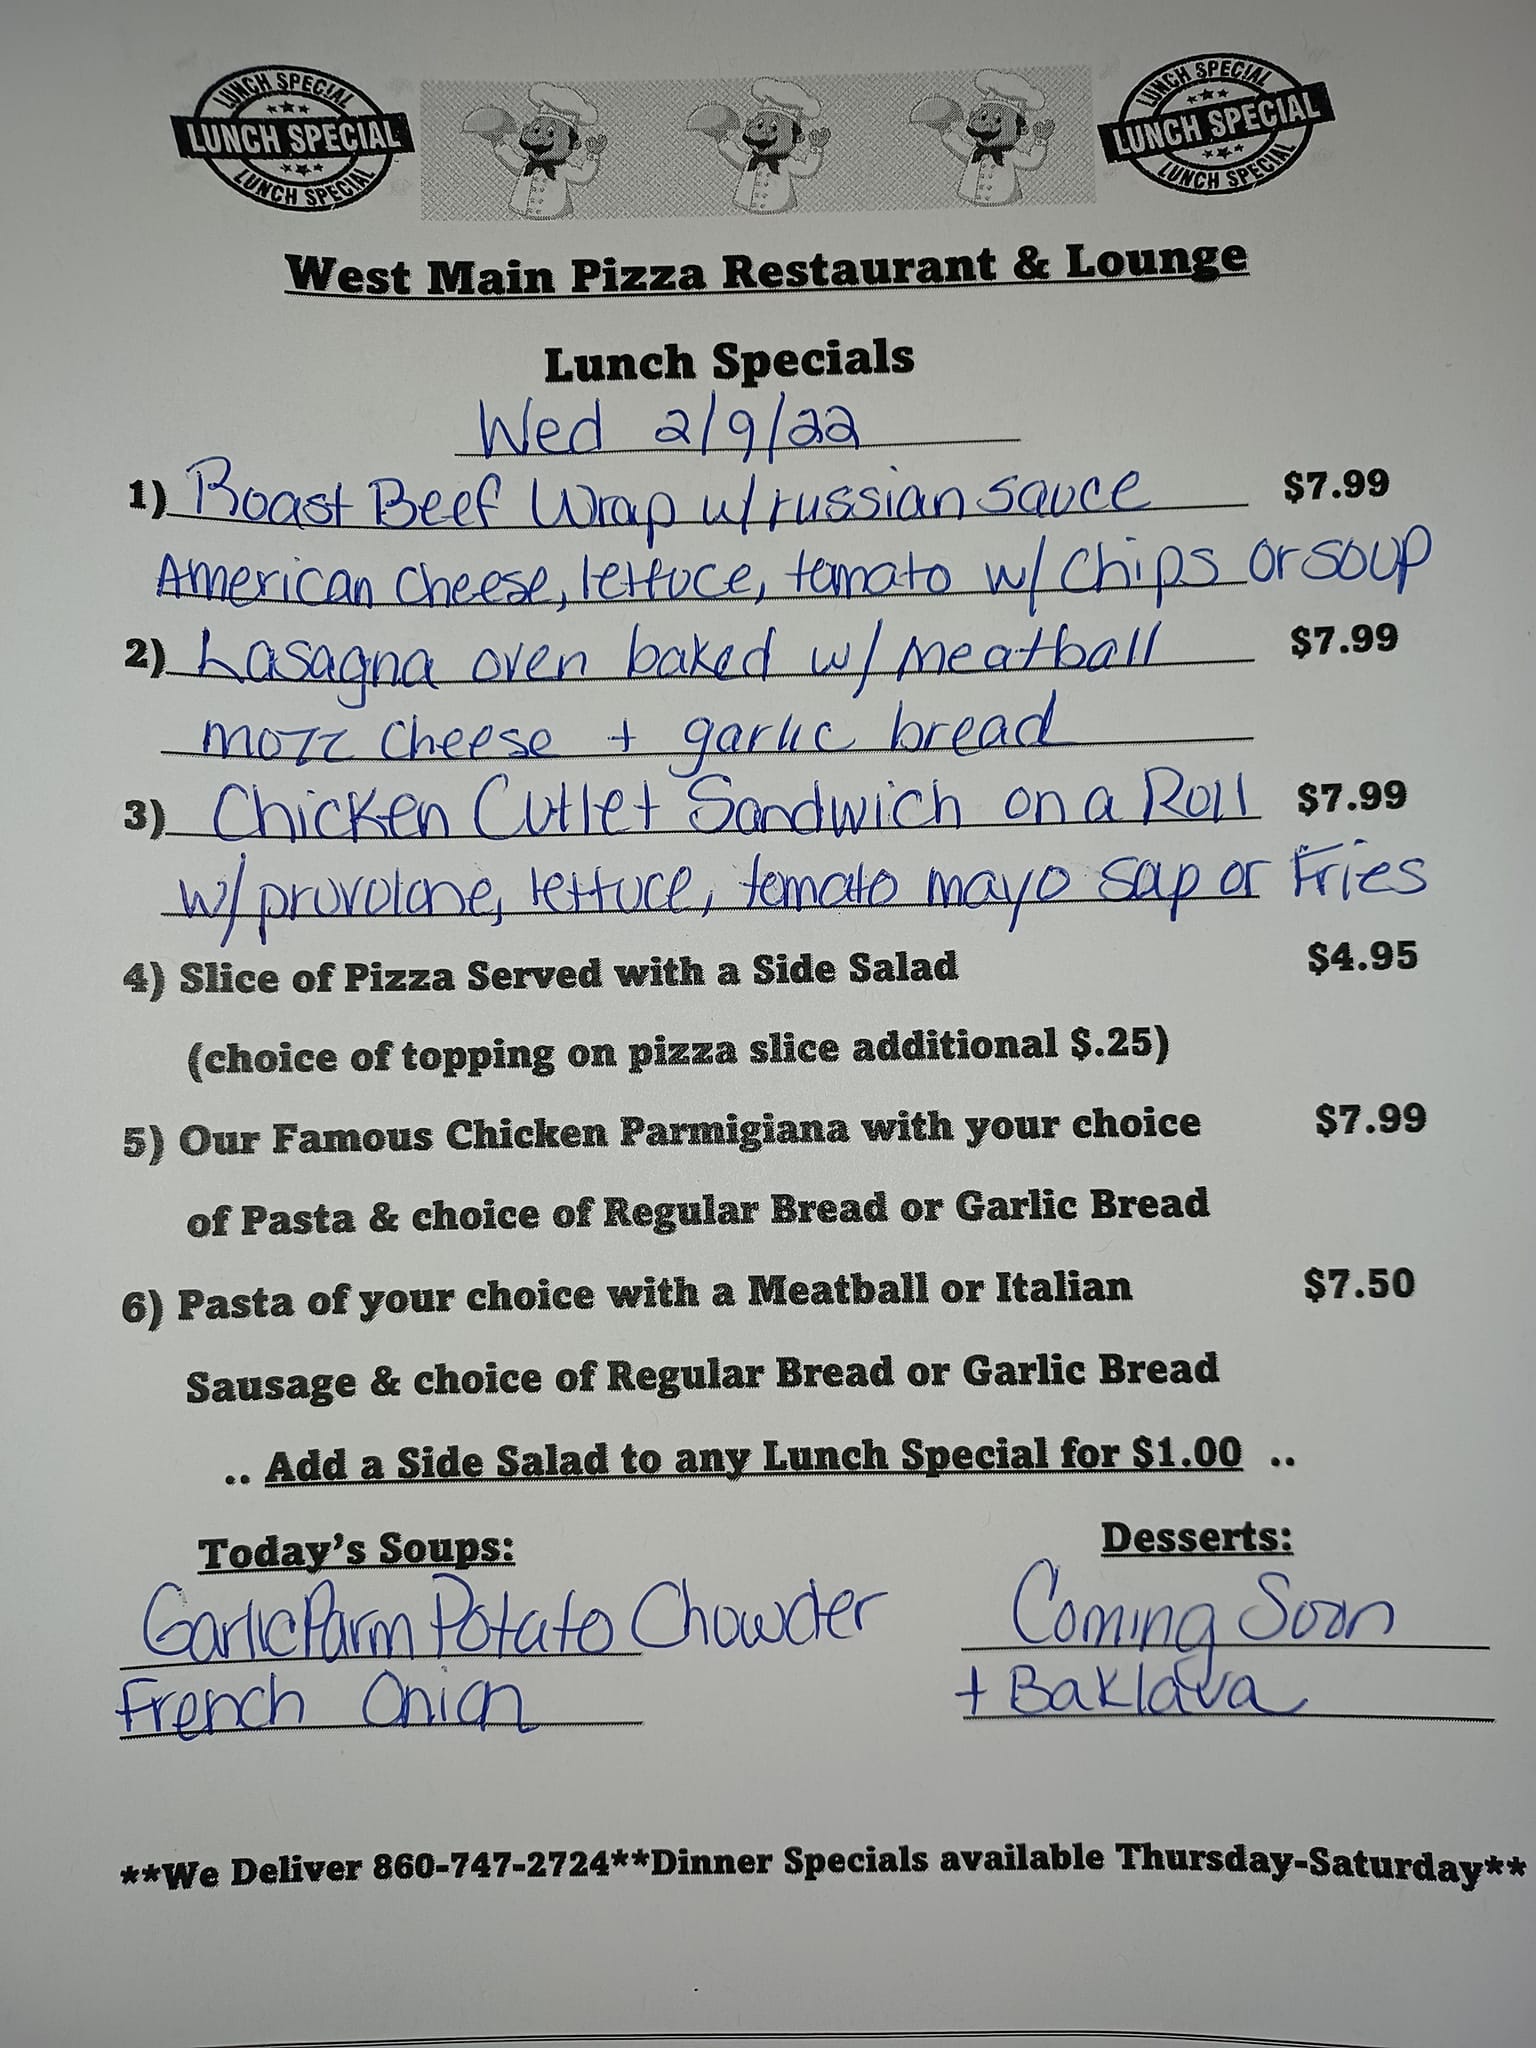 LUNCH SPECIAL
LUNCH SPECIAL
LUNCH SPECIAL
LUNCH SPECIAL
LUNCH SPECIAL
LUNCH SPECIAL
West Main Pizza Restaurant & Lounge
Lunch Specials
Wed 2/9/22
1) Roast Beef Wrap w/ russian sauce $7.99
American cheese, lettuce, tomato w/ chips or soup
2) Lasagna oven baked w/ meatball $7.99
mozz cheese + garlic bread
3) Chicken Cutlet Sandwich on a Roll $7.99
w/ provolone, lettuce, tomato mayo soup or Fries
4) Slice of Pizza Served with a Side Salad $4.95
(choice of topping on pizza slice additional $.25)
5) Our Famous Chicken Parmigiana with your choice $7.99
of Pasta & choice of Regular Bread or Garlic Bread
6) Pasta of your choice with a Meatball or Italian $7.50
Sausage & choice of Regular Bread or Garlic Bread
.. Add a Side Salad to any Lunch Special for $1.00 ..
Today's Soups: Desserts:
Garlic Parm Potato Chowder Coming Soon
French Onion + Baklava
**We Deliver 860-747-2724**Dinner Specials available Thursday-Saturday**